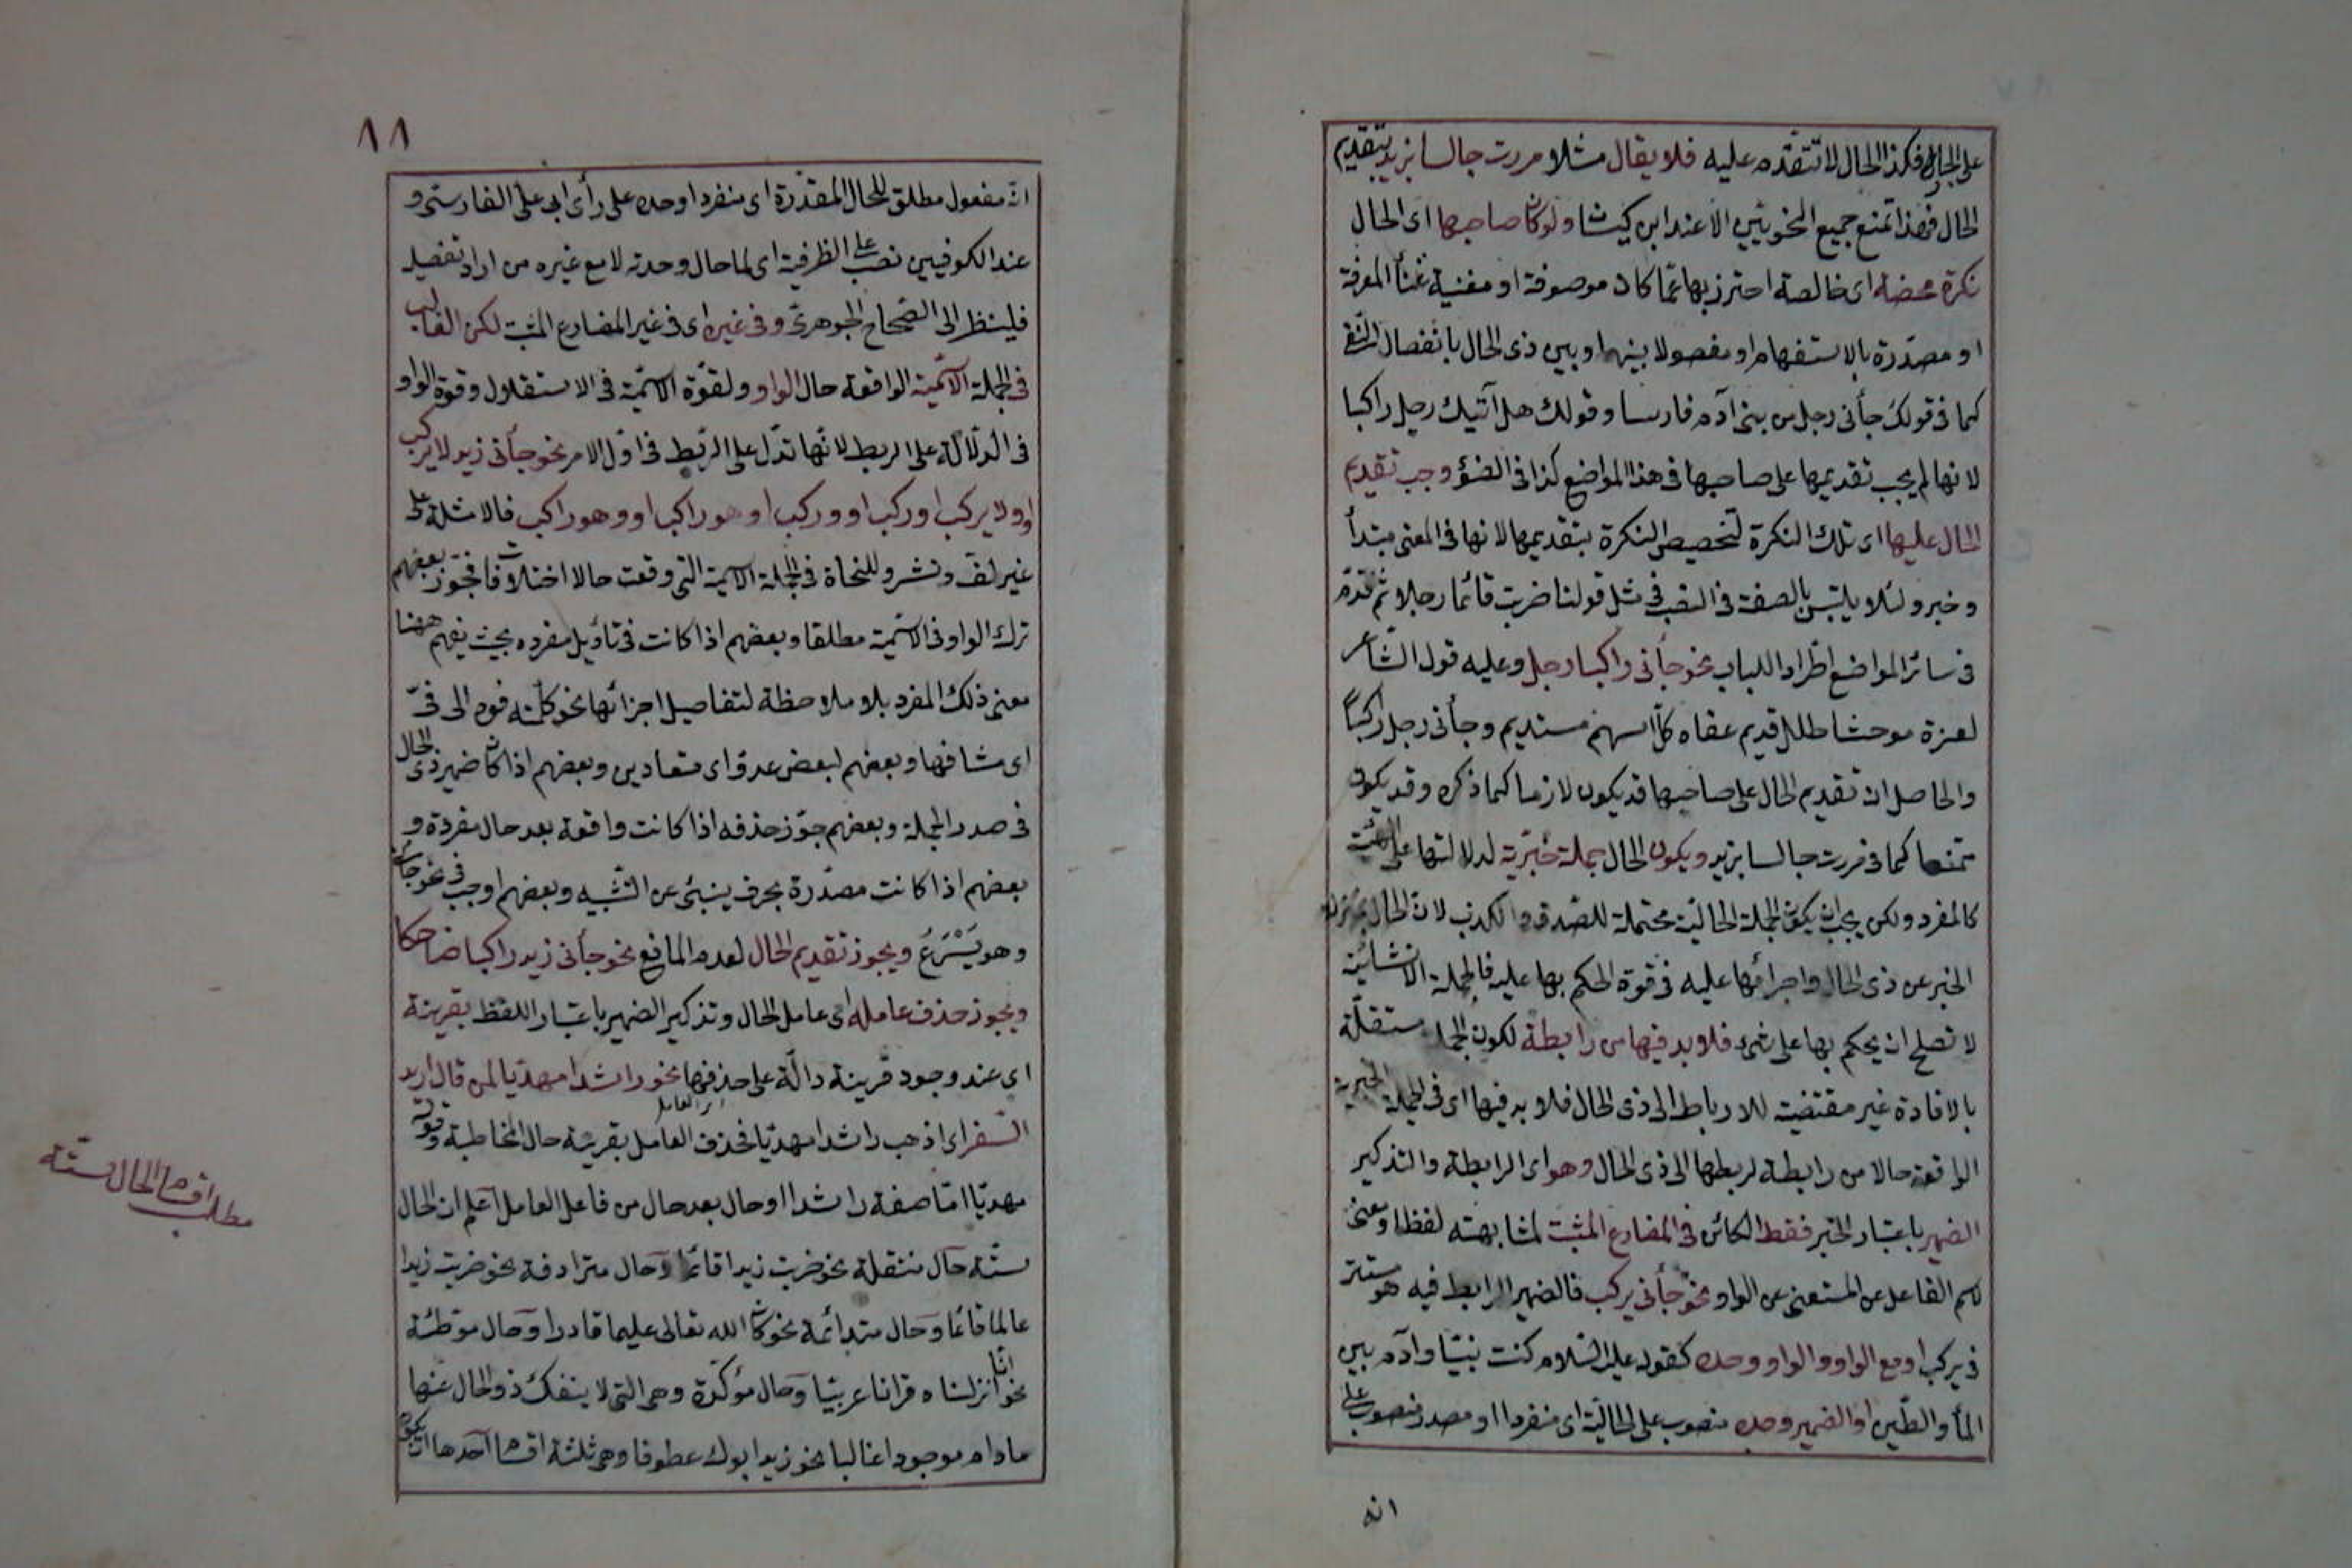 على الجار فكذا الحال لا تتقدم عليه فلا يقال مثلا مررت جالسا بزيد بتقديم
الحال فهذا تمنع جميع النحويين الا عند ابن كيسان ولو كان صاحبها اى الحال
نكرة محضة اى خالصة احترز بها عما كان موصوفة او مغنية غناً المعرفة
او مصدّرة بالاستفهام او مفصولا بينها وبين ذى الحال بانفصال النفى
كما فى قولك جأنى رجل من بنى آدم فارسا وقولك هل آتيك رجل راكبا
لانها لم يجب تقديمها على صاحبها فى هذا المواضع كذا فى الضؤ وجب تقديم
الحال عليها اى تلك النكرة لتخصيص النكرة بتقديمها لانها فى المعنى مبتدأ
وخبر ولئلا يلتبس بالصفة فى النصب فى مثل قولنا ضربت قائما رجلا ثم قدّم
فى سائر المواضع اطّرادا للباب نحو جأنى راكبا رجل وعليه قول الشاعر
لعزة موحشا طلل قديم عفاه كل اسهم مستديم وجأنى رجل راكباً
والحاصل ان تقديم الحال على صاحبها قد يكون لازما كما ذكره وقد يكون
ممتنعا كما فى مررت جالسا بزيد ويكون الحال جملة خبريّة لدلالتها على الهيئة
كالمفرد ولكن يجب ان يكون الجملة الحاليّة محتملة للصّدق والكذب لان الحال بمنزلة
الخبر عن ذى الحال واجرائها عليه فى قوة الحكم بها عليه فالجملة الانشائيّة
لا تصلح ان يحكم بها على شئ فلا بد فيها من رابطة لكون الجملة مستقلّة
بالافادة غير مقتضية للارباط الى ذى الحال فلا بد فيها اى فى الجملة الخبرية
الواقعة حالا من رابطة لربطها الى ذى الحال وهو اى الرابطة والتذكير
الضمير باعتبار الخبر فقط الكائن فى المضارع المثبت لمشابهته لفظا ومعنى
لاسم الفاعل عن المستغنى عن الواو نحو جأنى يركب فالضمير الرابط فيه هو مستتر
فى يركب او مع الواو والواو وحده كقوله عليه السّلام كنت نبيّا وآدم بين
المأ والطّين او الضمير وحده منصوب على الحاليّة اى منفردا او مصدر منصوب على
انه
٨٨
انّه مفعول مطلق للحال المقدّرة اى منفردا وحده على رأى ابى على الفارسى و
عند الكوفيين نصب على الظرفية اى لما حال وحدته لا مع غيره من اراد تفصيله
فلينظر الى الصّحاح الجوهرىّ وفى غيره اى فى غير المضارع المثبت لكن الغالب
فى الجملة الاسميّة الواقعة حال الواو ولقوّة الاسميّة فى الاستقلال وقوة الواو
فى الدلالة على الربط لانّها تدل على الرّبط فى اوّل الامر نحو جأنى زيد لا يركب
او ولا يركب او ركب او وركب او هو راكب او وهو راكب فالامثلة على
غير لف ونشر وللنحاة فى الجملة الاسمية التى وقعت حالا اختلافات فاجّوز بعضهم
ترك الواو فى الاسميّة مطلقا وبعضهم اذا كانت فى تأويل مفرده بحيث يفهم ههنا
معنى ذلك المفرد بلا ملاحظة لتفاصيل اجزائها نحو كلمته فوه الى فىّ
اى مشافها وبعضهم لبعض عدوّ اى متعادين وبعضهم اذا كان ضمير ذى الحال
فى صدر الجملة وبعضهم جوّز حذفه اذا كانت واقعة بعد حال مفردة و
بعضهم اذا كانت مصدّرة بحرف ينبئ عن التّشبيه وبعضهم اوجب فى نحو جأنى
وهو يَسْرَعُ ويجوز تقديم الحال لعدم المانع نحو جأنى زيد راكبا ضاحكا
ويجوز حذف عامله اى عامل الحال وتذكير الضمير باعتبار اللفظ بقرينة
اى عند وجود قرينة دالّة على حذفها نحو راشدا مهديّا لمن قال اريد
اى العامل
السّفر اى اذهب راشدا مهديّا فحذف العامل بقرينة حال المخاطبة وقوله
مهديّا امّا صفة راشدا او حال بعد حال من فاعل العامل اعلم ان الحال
ستّة حال منتقلة نحو ضربت زيدا قائما وحال مترادفة نحو ضربت زيدا
عالما قائما وحال مبتدائمة نحو كان الله تعالى عليما قادرا وحال موطئة
نحو انّا انزلناه قرانا عربيّا وحال مؤكّدة وهى التى لا ينفكّ ذو الحال عنها
ما دام موجودا غالبا نحو زيد ابوك عطوفا وهى ثلثة اقسام احدها ان يكون
مطلب اقسام الحال ستّة